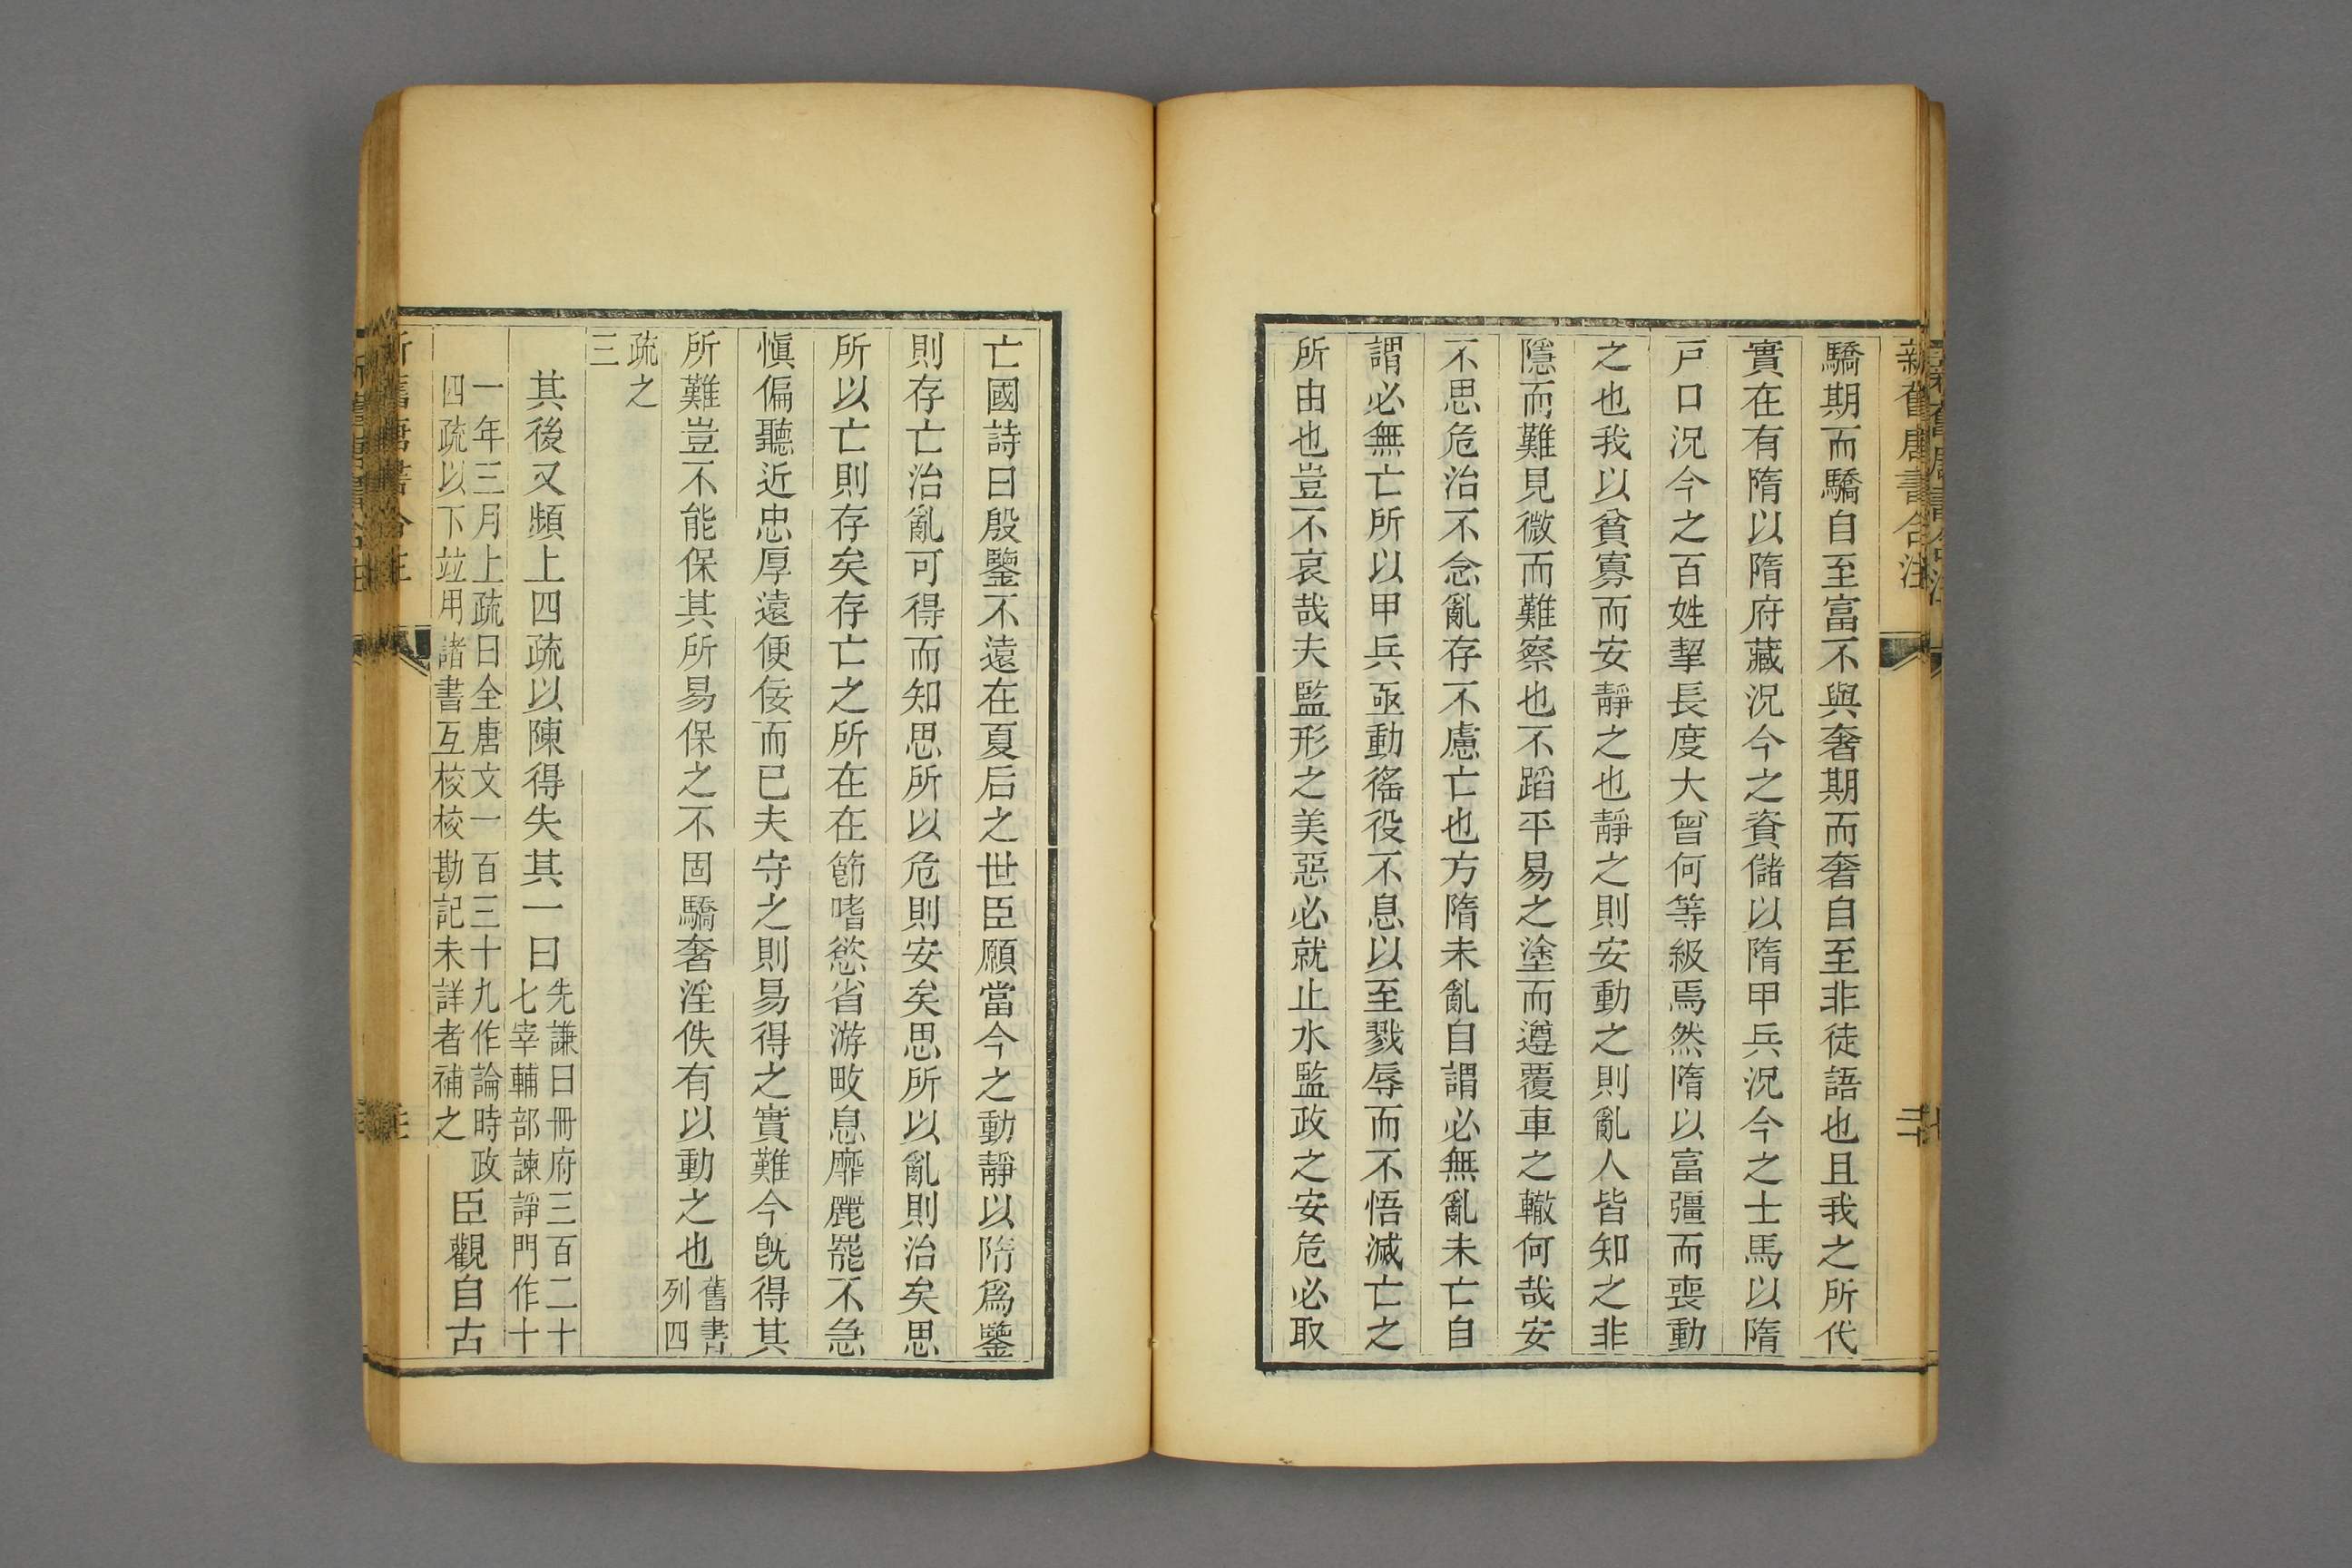 新舊唐書合注
二十
驕期而驕自至富不與奢期而奢自至非徒語也且我之所代
實在有隋以隋府藏況今之資儲以隋甲兵況今之士馬以隋
戶口況今之百姓挈長度大曾何等級焉然隋以富彊而喪動
之也我以貧寡而安靜之也靜之則安動之則亂人皆知之非
隱而難見微而難察也不蹈平易之塗而遵覆車之轍何哉安
不思危治不念亂存不慮亡也方隋未亂自謂必無亂未亡自
謂必無亡所以甲兵亟動徭役不息以至戮辱而不悟滅亡之
所由也豈不哀哉夫監形之美惡必就止水監政之安危必取
亡國詩曰殷鑒不遠在夏后之世臣願當今之動靜以隋爲鑒
則存亡治亂可得而知思所以危則安矣思所以亂則治矣思
所以亡則存矣存亡之所在在節嗜慾省游畋息靡麗罷不急
愼偏聽近忠厚遠便佞而已夫守之則易得之實難今旣得其
所難豈不能保其所易保之不固驕奢淫佚有以動之也舊書列四
疏之三
其後又頻上四疏以陳得失其一曰先謙曰冊府三百二十七宰輔部諫諍門作十
一年三月上疏曰全唐文一百三十九作論時政四疏以下竝用諸書互校校勘記未詳者補之臣觀自古
新舊唐書合注